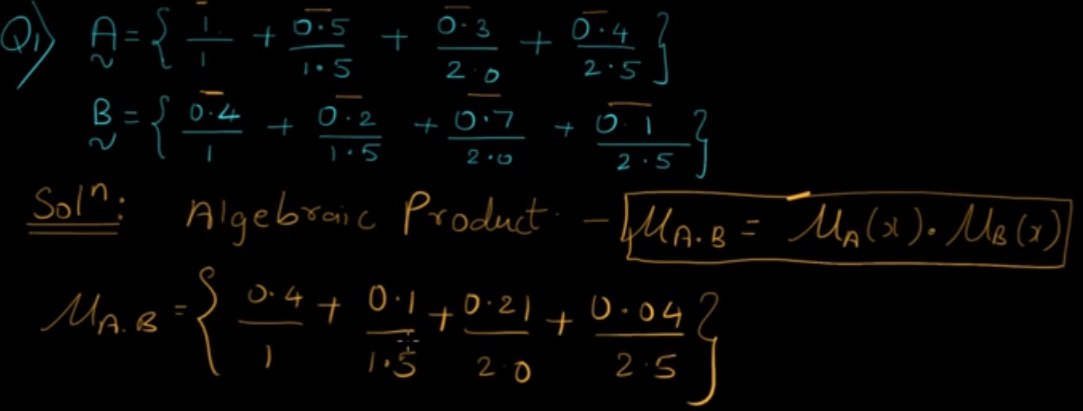 Q1) A = { 1/1 + 0.5/1.5 + 0.3/2.0 + 0.4/2.5 }
B = { 0.4/1 + 0.2/1.5 + 0.7/2.0 + 0.1/2.5 }
Solⁿ: Algebraic Product - μA.B = μA(x) . μB(x)
μA.B = { 0.4/1 + 0.1/1.5 + 0.21/2.0 + 0.04/2.5 }